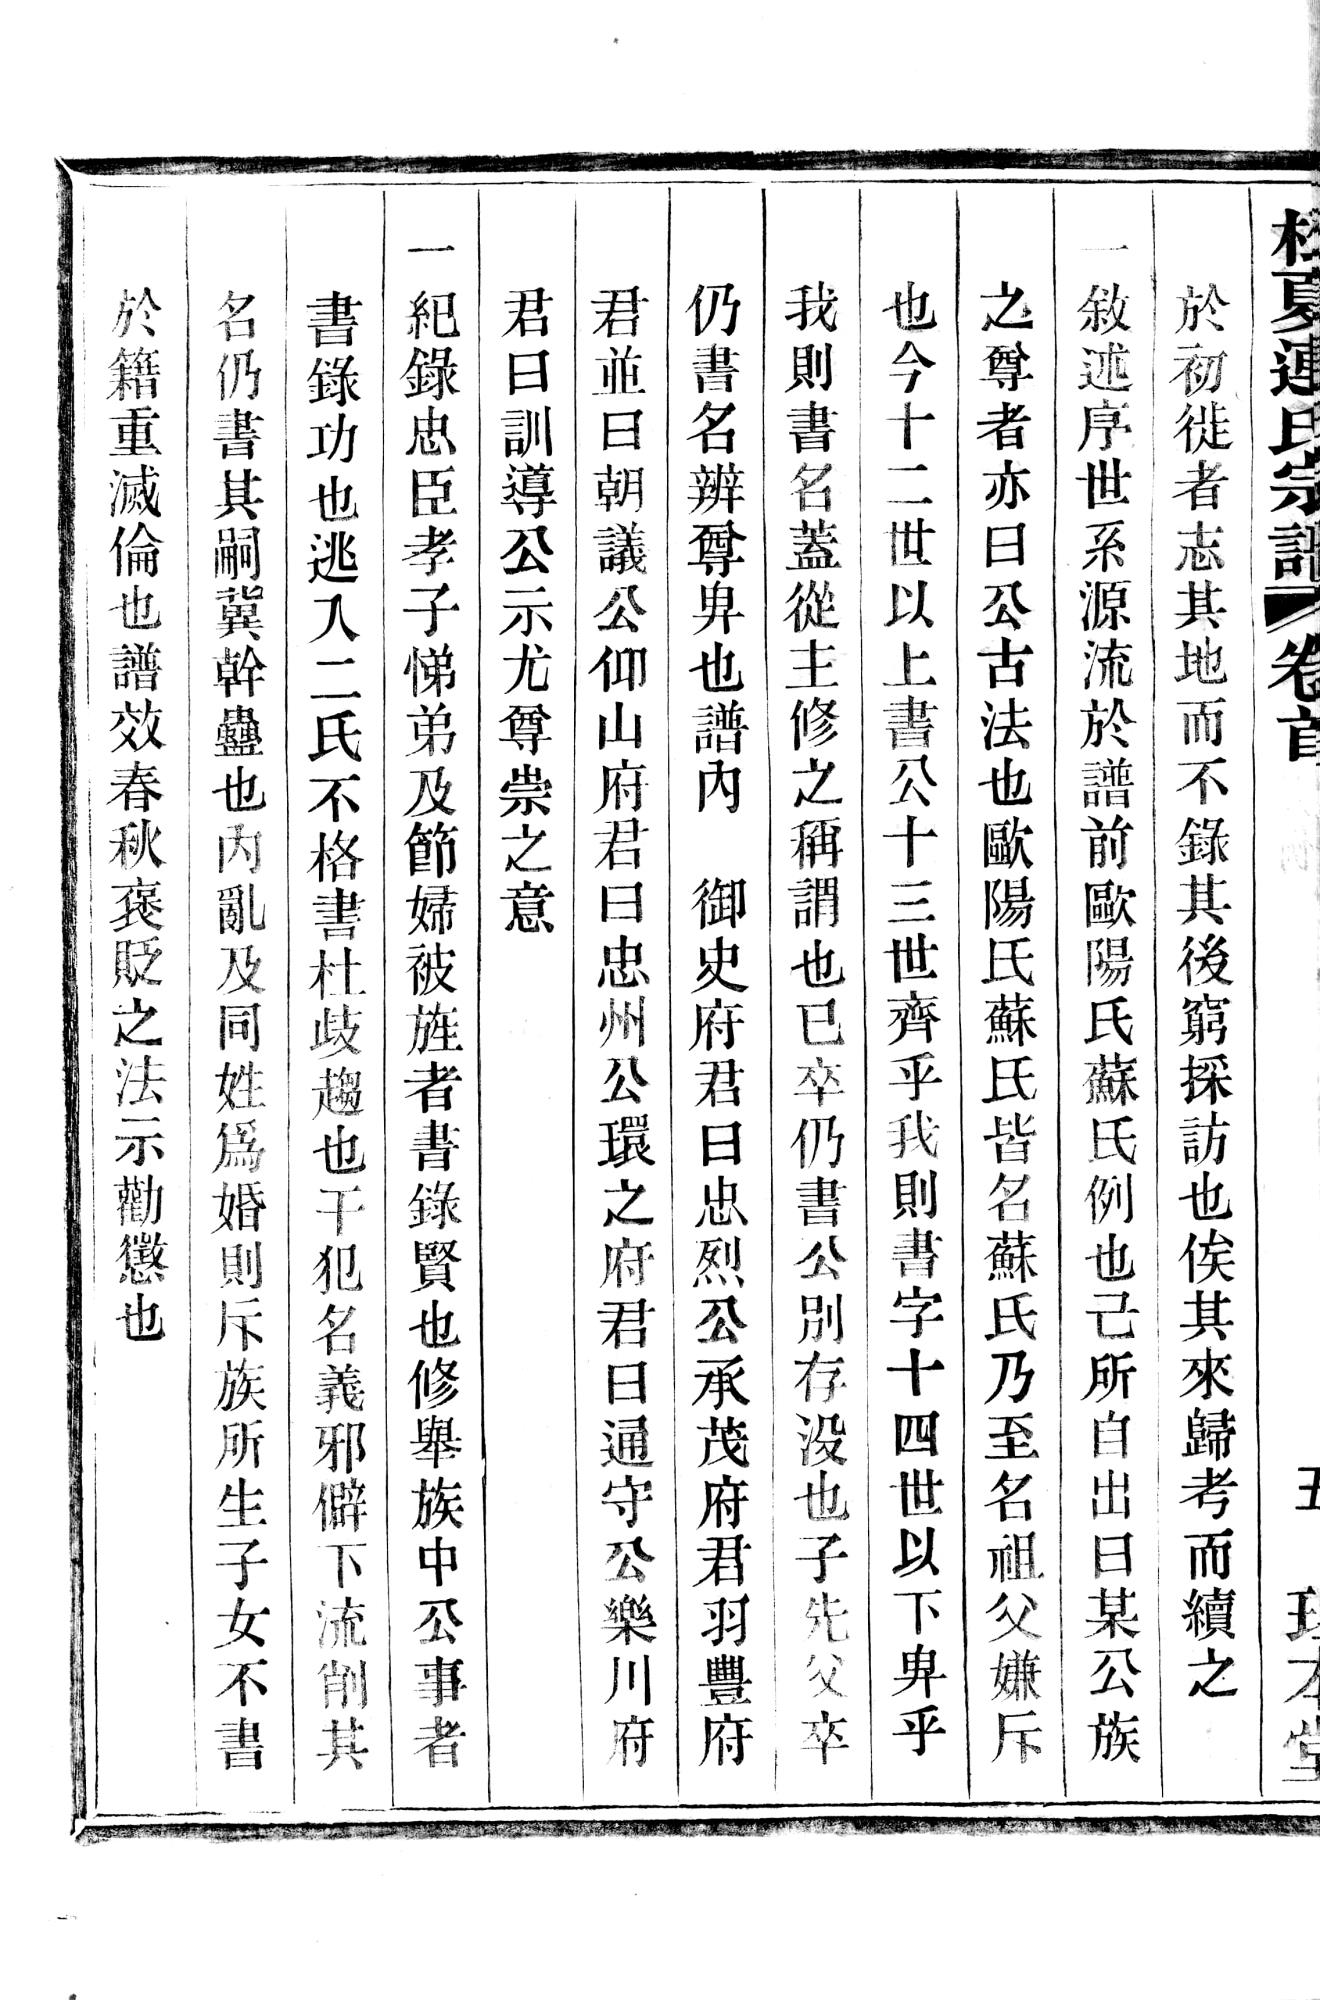 松夏連氏宗譜 卷首 五
於初徙者志其地而不錄其後窮採訪也俟其來歸考而續之
一敘述序世系源流於譜前歐陽氏蘇氏例也己所自出曰某公族
之尊者亦曰公古法也歐陽氏蘇氏皆名蘇氏乃至名祖父嫌斥
也今十二世以上書公十三世齊乎我則書字十四世以下卑乎
我則書名蓋從主修之稱謂也已卒仍書公別存沒也子先父卒
仍書名辨尊卑也譜內 御史府君曰忠烈公承茂府君羽豐府
君並曰朝議公仰山府君曰忠州公環之府君曰通守公樂川府
君曰訓導公示尤尊崇之意
一紀錄忠臣孝子悌弟及節婦被旌者書錄賢也修舉族中公事者
書錄功也逃入二氏不格書杜歧趨也干犯名義邪僻下流削其
名仍書其嗣冀幹蠱也內亂及同姓為婚則斥族所生子女不書
於籍重滅倫也譜效春秋褒貶之法示勸懲也